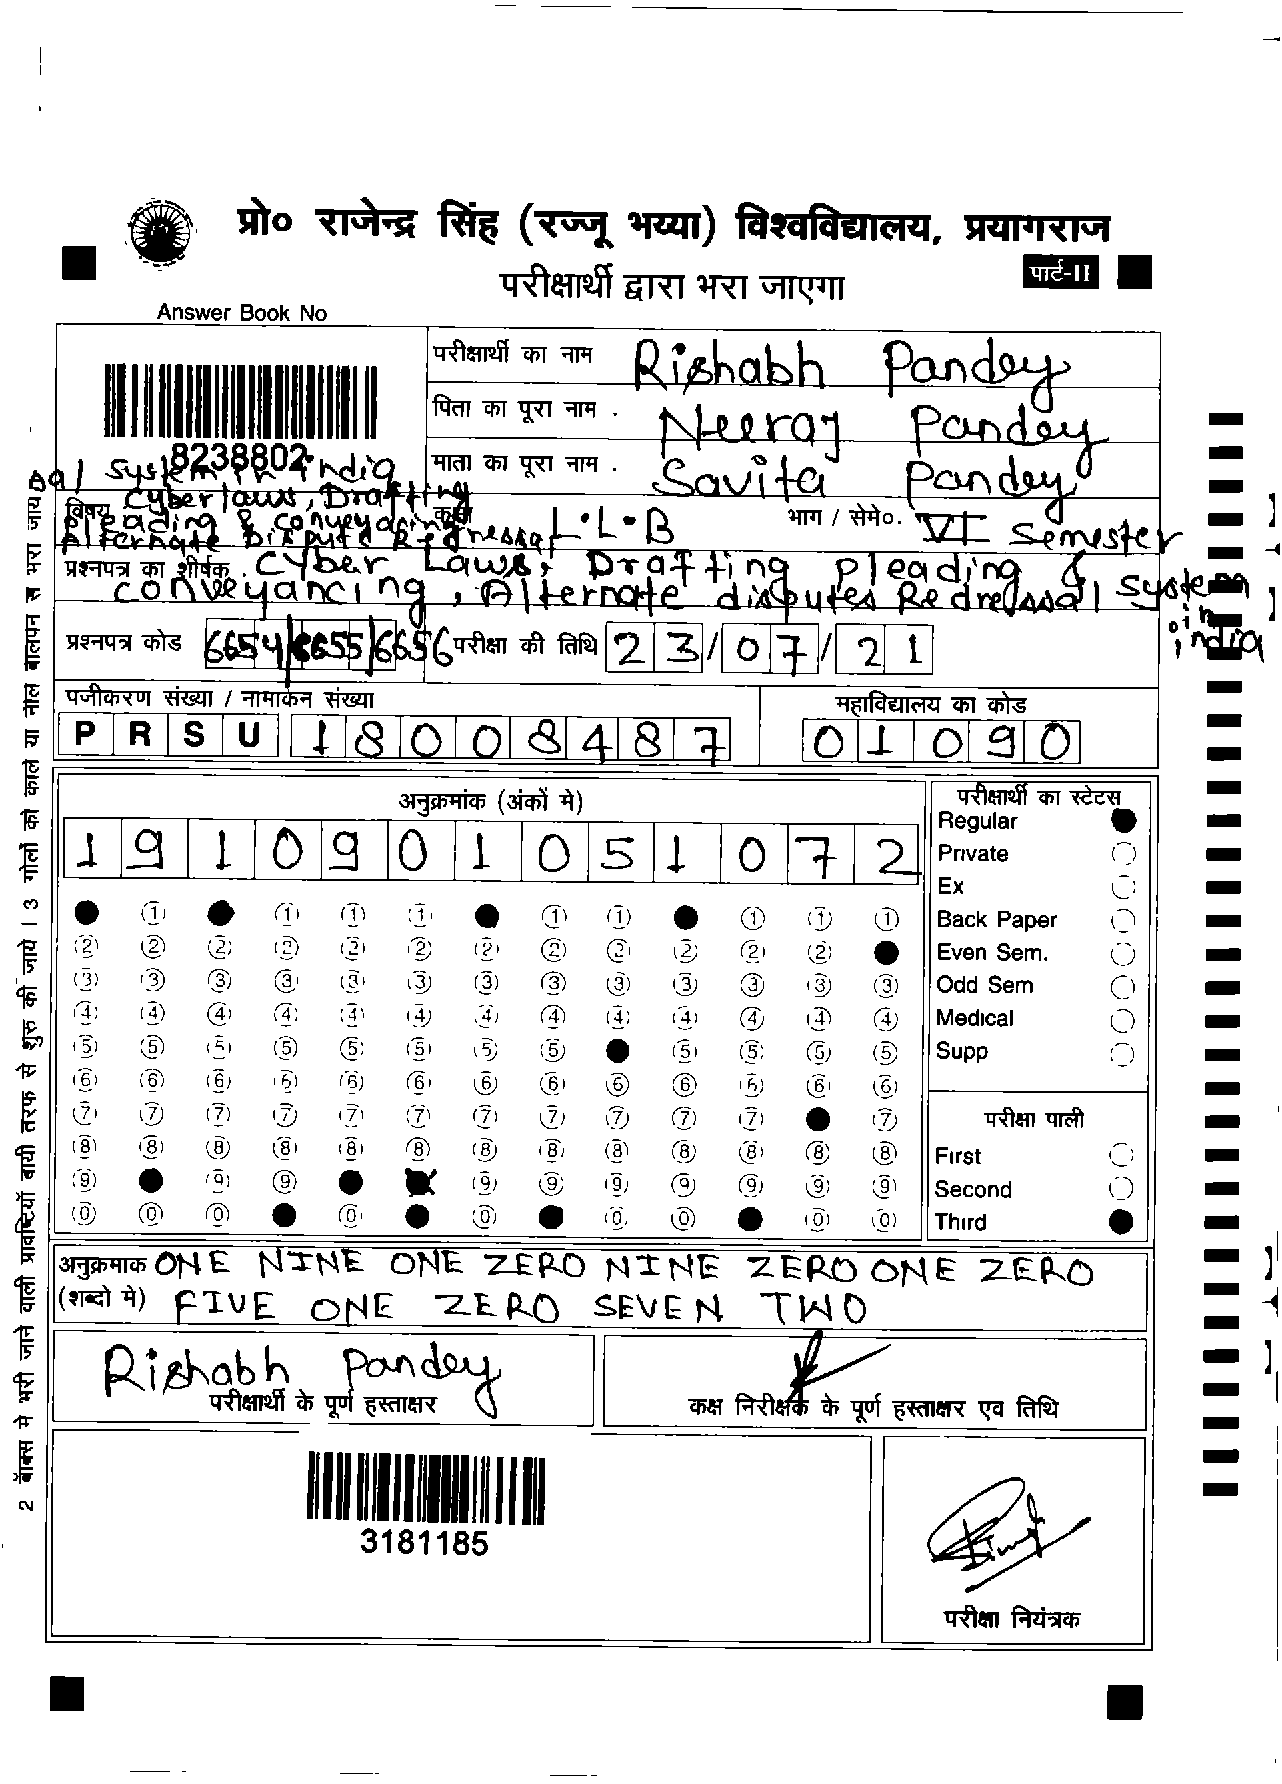 प्रो० राजेन्द्र सिंह (रज्जू भय्या) विश्वविद्यालय, प्रयागराज
परीक्षार्थी द्वारा भरा जाएगा
पार्ट-II
Answer Book No
8238802
परीक्षार्थी का नाम Rishabh Pandey
पिता का पूरा नाम . Neeraj Pandey
माता का पूरा नाम . Savita Pandey
विषय Cyber laws, Drafting
Pleading & conveyacing
Alternate Dispute Redressal
sal system in india
कक्षा L.L.B
भाग / सेमे०. VI Semester
प्रश्नपत्र का शीर्षक . Cyber Laws, Drafting pleading &
conveyancing, Alternate disputes Redressal system
in
india
प्रश्नपत्र कोड 6654/6655/6656 परीक्षा की तिथि 23/07/21
पंजीकरण संख्या / नामांकन संख्या
PRSU 18008487
महाविद्यालय का कोड
01090
अनुक्रमांक (अंकों मे)
1 9 1 0 9 0 1 0 5 1 0 7 2
1 1 1 1 1 1 1 1 1
2 2 2 2 2 2 2 2 2 2 2 2
3 3 3 3 3 3 3 3 3 3 3 3 3
4 4 4 4 4 4 4 4 4 4 4 4 4
5 5 5 5 5 5 5 5 5 5 5 5
6 6 6 6 6 6 6 6 6 6 6 6 6
7 7 7 7 7 7 7 7 7 7 7 7
8 8 8 8 8 8 8 8 8 8 8 8 8
9 9 9 9 9 9 9 9 9 9
0 0 0 0 0 0 0 0 0
परीक्षार्थी का स्टेटस
Regular
Private
Ex
Back Paper
Even Sem.
Odd Sem
Medical
Supp
परीक्षा पाली
First
Second
Third
अनुक्रमांक ONE NINE ONE ZERO NINE ZERO ONE ZERO
(शब्दो मे) FIVE ONE ZERO SEVEN TWO
Rishabh Pandey
परीक्षार्थी के पूर्ण हस्ताक्षर
कक्ष निरीक्षक के पूर्ण हस्ताक्षर एव तिथि
3181185
परीक्षा नियंत्रक
2 बॉक्स मे भरी जाने वाली प्रविष्टियाँ बायी तरफ से शुरू की जाये । 3 गोलों को काले या नीले बालपेन से भरा जाय